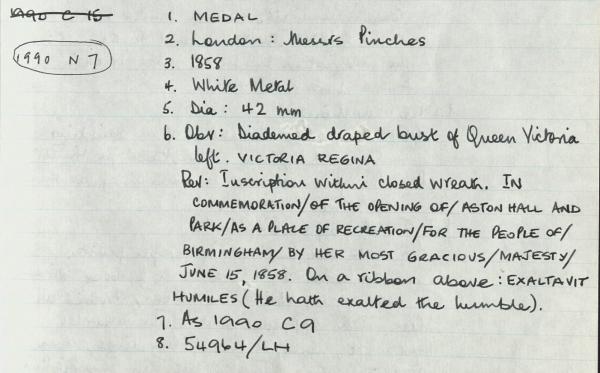 1990 C 15
1990 N 7
1. MEDAL
2. London : Messrs Pinches
3. 1858
4. White Metal
5. Dia : 42 mm
6. Obv: Diademed, draped bust of Queen Victoria
left. VICTORIA REGINA
Rev: Inscription within closed wreath. IN
COMMEMORATION/OF THE OPENING OF/ASTON HALL AND
PARK/AS A PLACE OF RECREATION/FOR THE PEOPLE OF/
BIRMINGHAM/BY HER MOST GRACIOUS/MAJESTY/
JUNE 15, 1858. On a ribbon above : EXALTAVIT
HUMILES (He hath exalted the humble).
7. As 1990 C9
8. 54964/LH